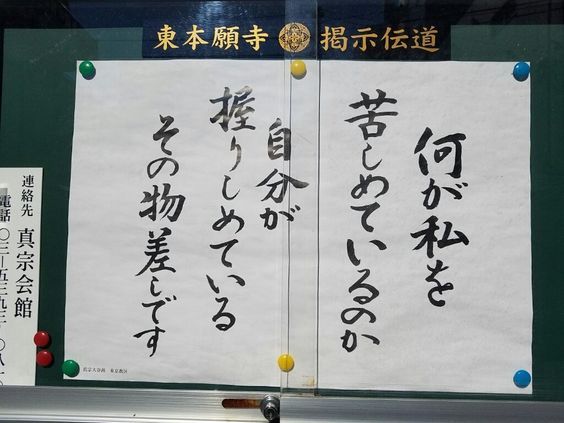 東本願寺 掲示伝道
何が私を
苦しめているのか
自分が
握りしめている
その物差しです
真宗大谷派 東京教区
連絡先 真宗会館
電話 〇三―五三九三―〇八一〇